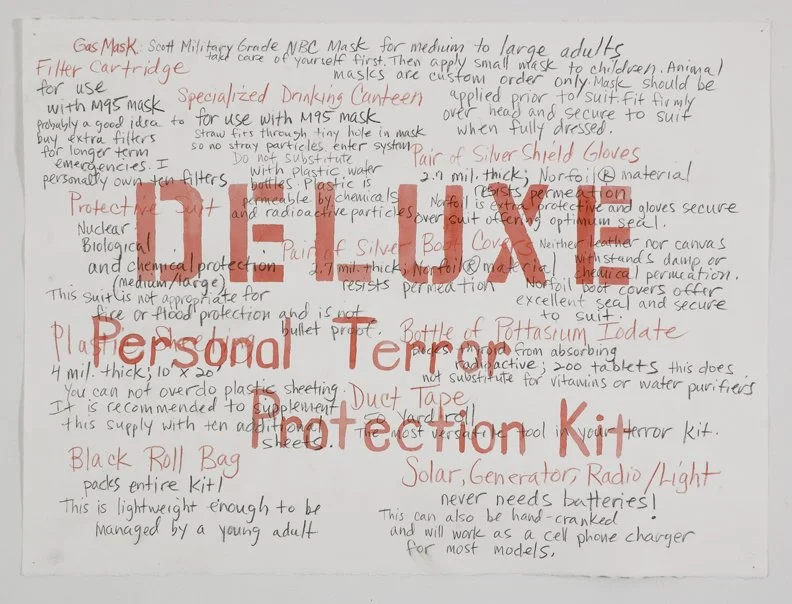 Gas Mask: Scott Military Grade NBC Mask for medium to large adults
take care of yourself first. Then apply small mask to children. Animal
masks are custom order only. Mask should be
applied prior to suit. fit firmly
over head and secure to suit
when fully dressed.
Filter Cartridge
for use
with M95 mask
probably a good idea to
buy extra filters
for longer term
emergencies. I
personally own ten filters
Specialized Drinking Canteen
for use with M95 mask
straw fits through tiny hole in mask
so no stray particles enter system
Do not substitute
with plastic water
bottles. Plastic is
permeable by chemicals
and radioactive particles
Pair of Silver Shield Gloves
2.7 mil. thick; Norfoil® material
resists permeation
Norfoil is extra protective and gloves secure
over suit offering optimum seal.
DELUXE
Protective Suit
Nuclear
Biological
and chemical protection
(medium/large)
This suit is not appropriate for
fire or flood protection and is not
bullet proof.
Pair of Silver Boot Covers
2.7 mil. thick; Norfoil® material
resists permeation
Neither leather nor canvas
withstands damp or
chemical permeation.
Norfoil boot covers offer
excellent seal and secure
to suit.
Personal Terror
Protection Kit
Plastic Sheeting
4 mil. thick; 10' x 20'
You can not overdo plastic sheeting.
It is recommended to supplement
this supply with ten additional
sheets.
Bottle of Pottasium Iodate
thyroid from absorbing
radioactive; 200 tablets this does
not substitute for vitamins or water purifiers
Duct Tape
50 yard roll
The most versatile tool in your terror kit.
Black Roll Bag
packs entire kit!
This is lightweight enough to be
managed by a young adult
Solar, Generator, Radio/Light
never needs batteries!
This can also be hand-cranked
and will work as a cell phone charger
for most models.